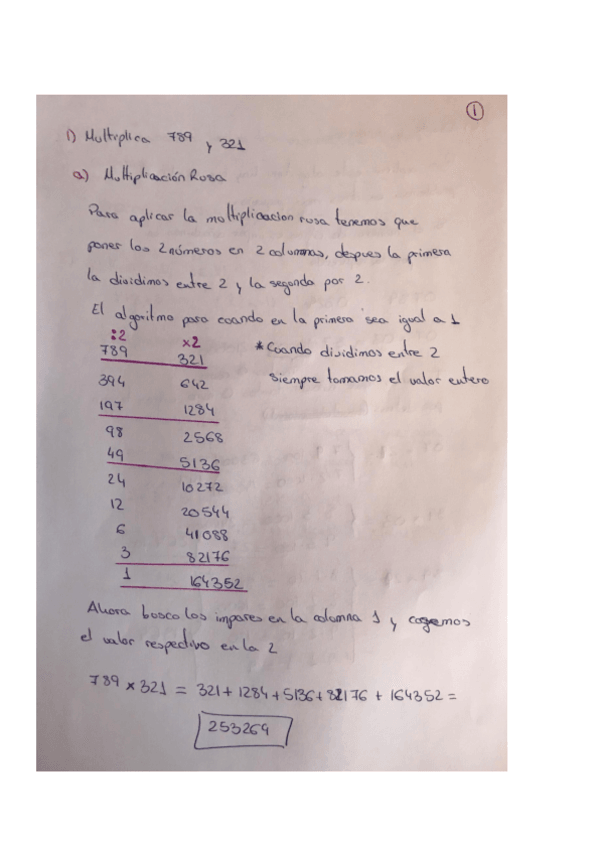 1
1) Multiplica 789 y 321
a) Multiplicación Rusa
Para aplicar la multiplicacion rusa tenemos que
poner los 2 números en 2 columnas, despues la primera
la dividimos entre 2 y la segunda por 2.
El algoritmo para cuando en la primera sea igual a 1
:2 x2
789 321 * Cuando dividimos entre 2
394 642 siempre tomamos el valor entero
197 1284
98 2568
49 5136
24 10272
12 20544
6 41088
3 82176
1 164352
Ahora busco los impares en la columna 1 y cogemos
el valor respectivo en la 2
789 x 321 = 321 + 1284 + 5136 + 82176 + 164352 =
253269